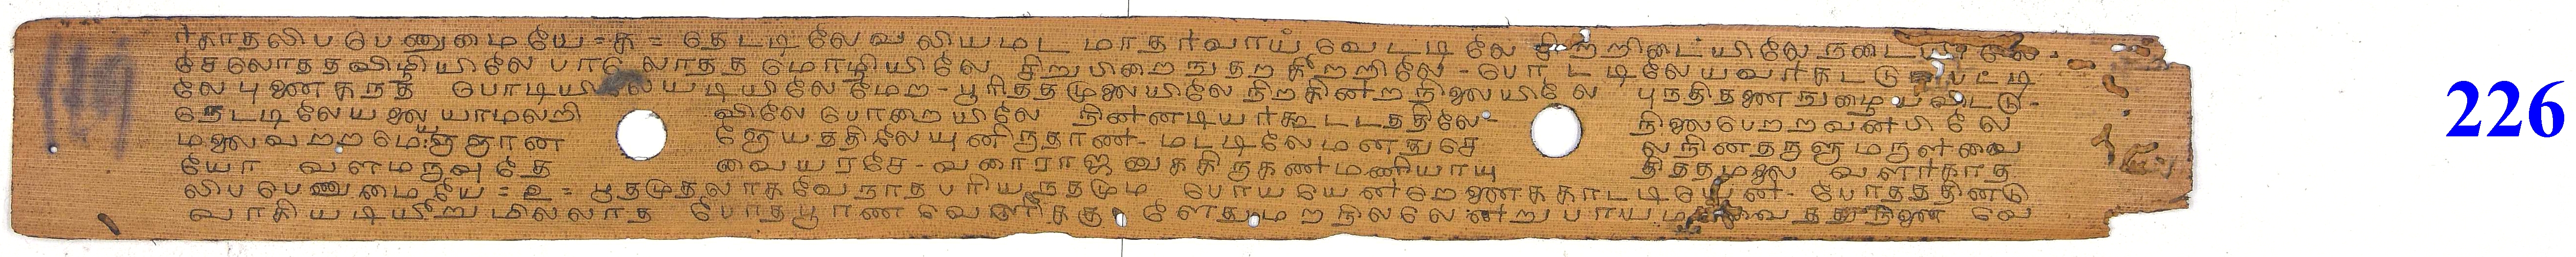 ர்காதலிபபெணுமையே = க = தெடடிலேவலியமடமாதர்வாய் வெடடிலே சிற்றிடையிலே நடையிலே -
சேலொததவிழியிலே பாலொதத மொழியிலே சிறுபிறைநுதறகீறறிலே - பொடடிலேயவர்கடடு பட்டி
லே புணைகநத பொடியிலேயடியிலேமேற - பூரிததமுலையிலே நிறகினற நிலையிலே புநதிதனைநுழையவிடடு -
நெடடிலேயலையாமலறி விலே பொறையிலே நின்னடியர்கூடடததிலே - நிலைபெறறவன்பிலே
மலைவறறமெயஞஞான ஞேயததிலேயுன்னிருதாண் - மடடிலேமனதுசெ லநினதருளுமருள்வை
யோ வளமருவு தே வையரசே - வரைராஜனுககிருகண்மணியாயு தித்தமலை வளர்காத
லிபபெணுமையே = உ = பூதமுதலாகவேநாதபரியநதமும பொயயென்றெனைககாடடியென் - போதததினடு
வாகியடியீறுமில்லாத போதபூரண வெளிககு ளேதுமறநில்லென்றுபாய வைதது நினை வெ
226